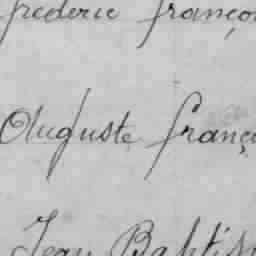 frederic franço
Auguste franç
Jean Baptis